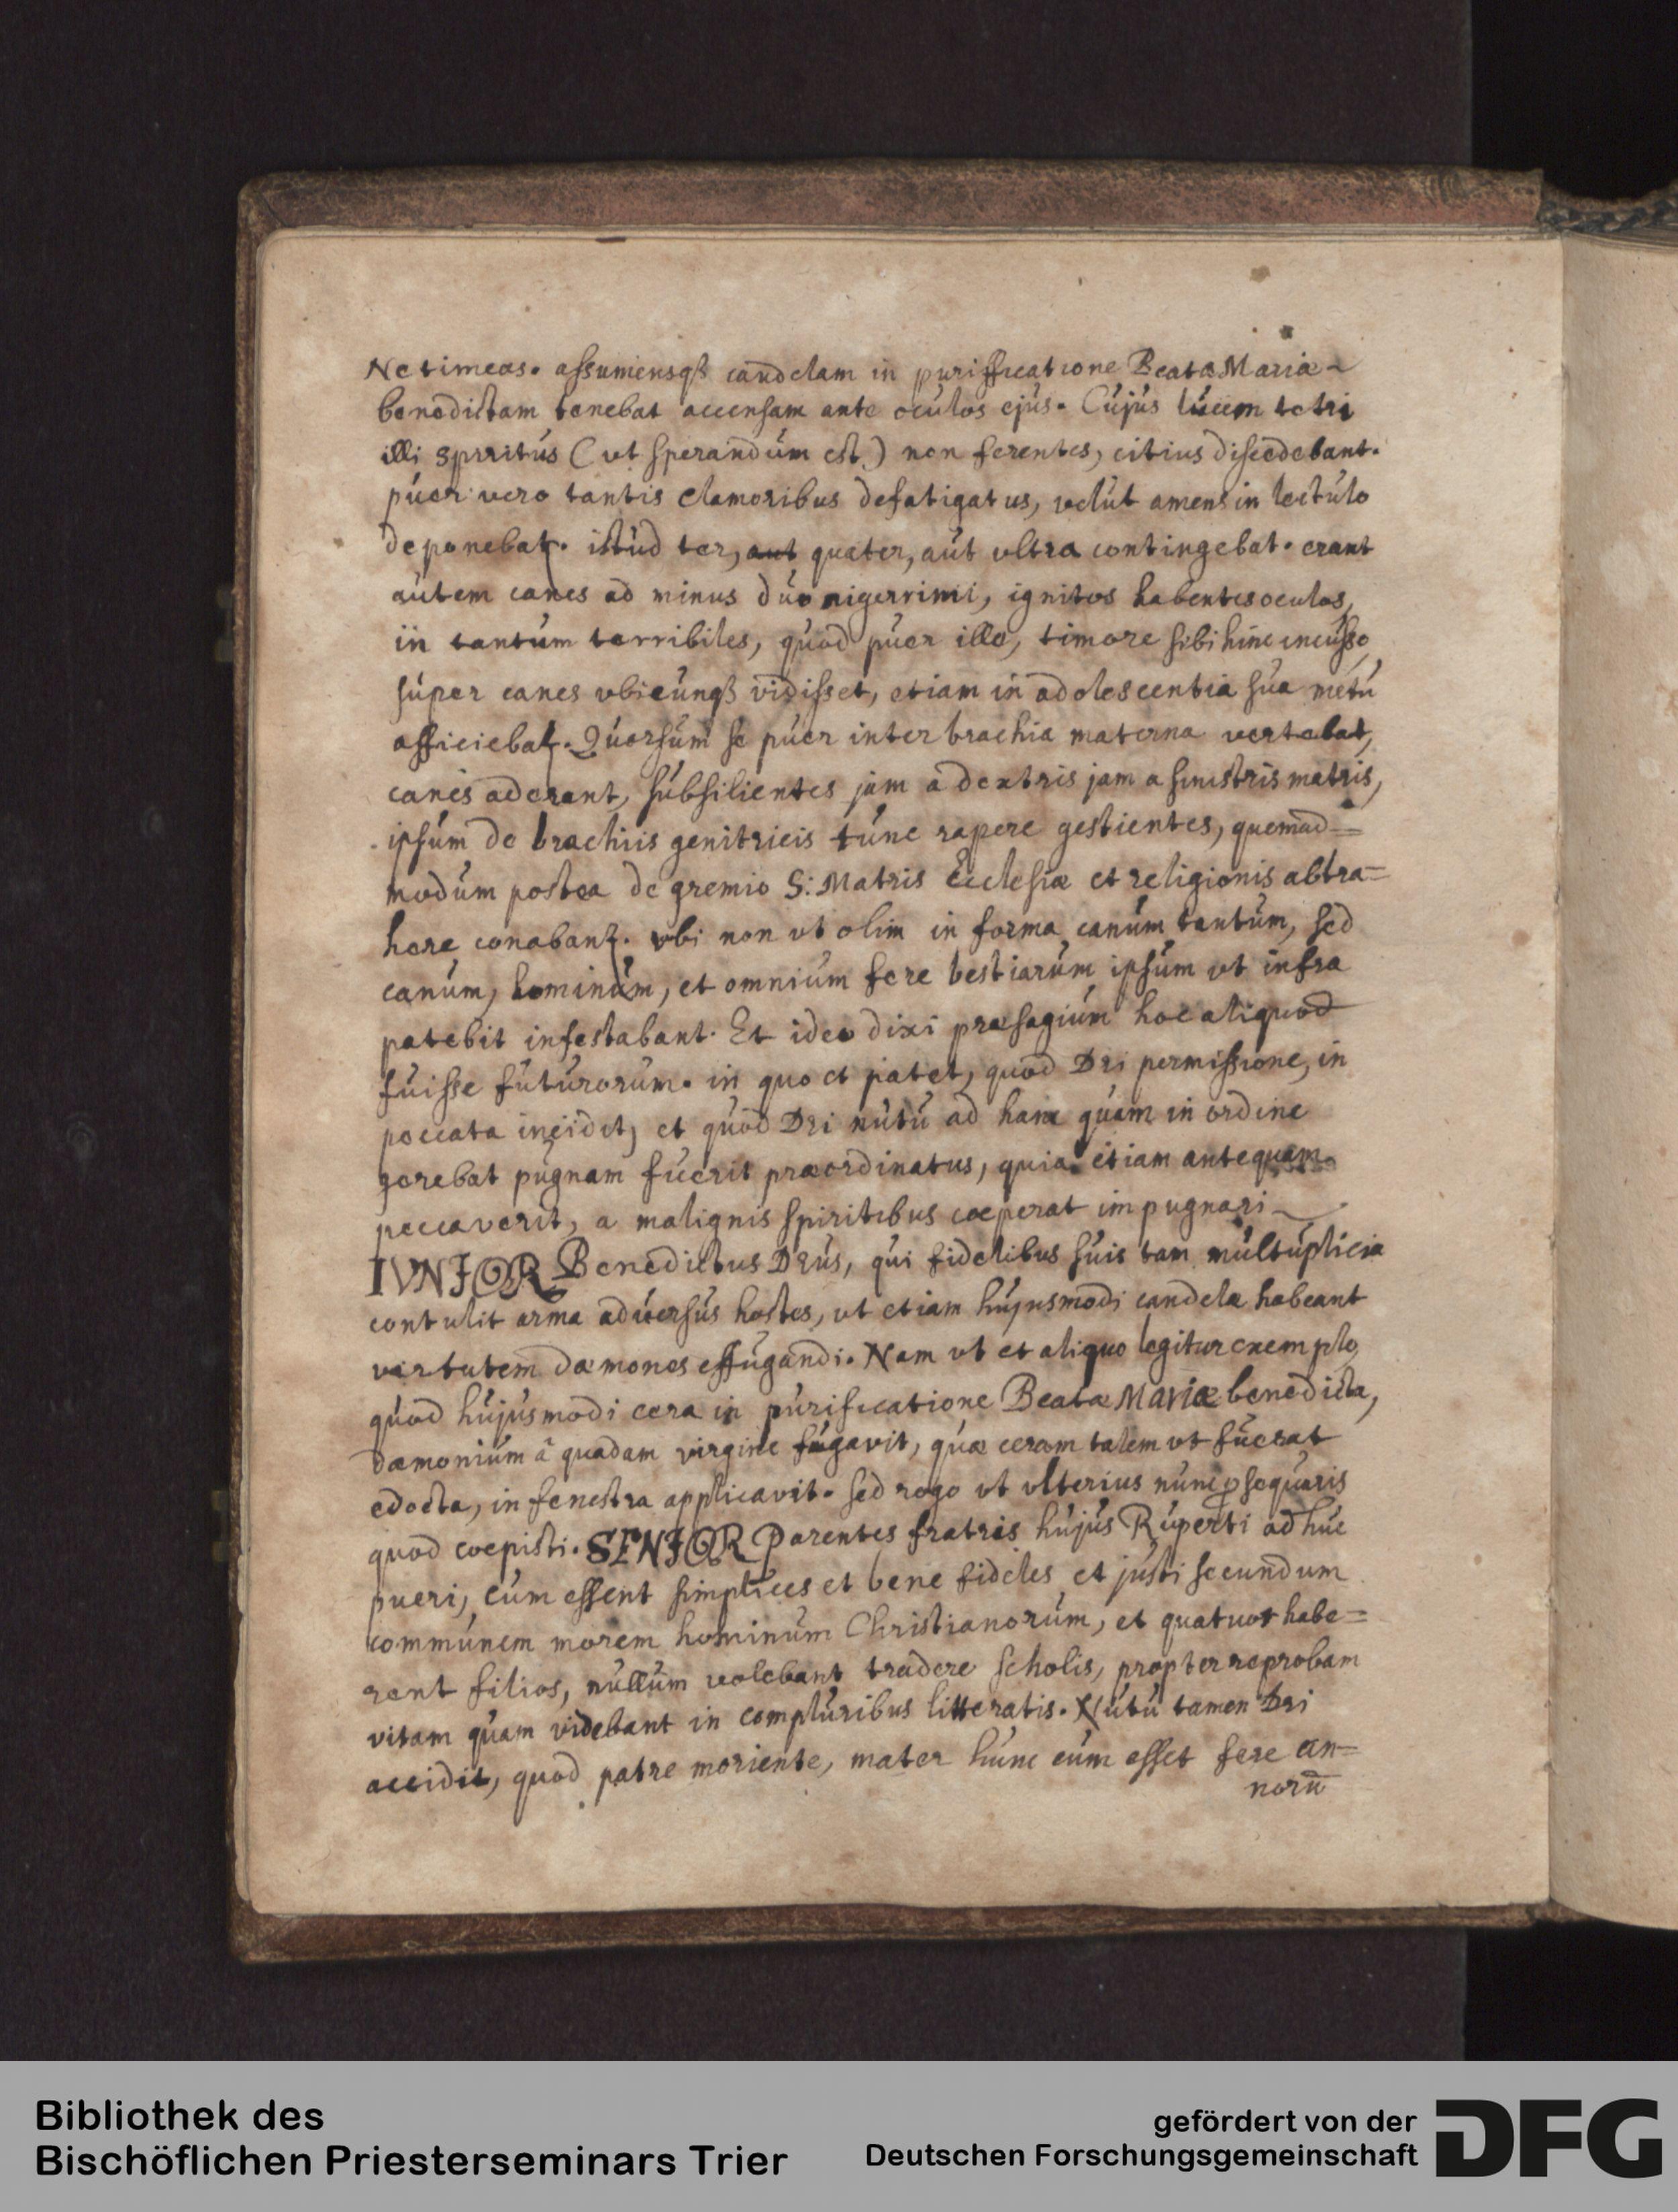 Ne timeas. assumensqȝ candelam in puriffcatione Beatæ Mariæ
benedictam tenebat accensam ante oculos ejus. Cujus lucem tetri
illi Spiritus (vt sperandum est) non ferentes, citius discedebant.
puer vero tantis clamoribus defatigatus, velut amens in lectulo
deponebat~. istud ter, aut quater, aut vltra contingebat. erant
autem canes ad minus duo nigerrimi, ignitos habentes oculos,
in tantum terribiles, quod puer ille, timore sibi hinc incusso,
super canes vbicunqȝ vidisset, etiam in adolescentia sua metu
afficiebat~. Quorsum se puer inter brachia materna vertebat,
canes aderant, subsilientes jam a dextris jam a sinistris matris,
ipsum de brachiis genitricis tunc rapere gestientes, quemad=
modum postea de gremio S: Matris Ecclesiæ et religionis abtra=
here conabant~. vbi non vt olim in forma canum tantum, sed
canum, hominum, et omnium fere bestiarum ipsum vt infra
patebit infestabant. Et ideo dixi præsagium hoc aliquod
fuisse futurorum. in quo et patet, quod Dei permissione, in
peccata incidit, et quod Dei nutu ad hanc quam in ordine
gerebat pugnam fuerit præordinatus, quia etiam antequam
peccaverit, a malignis spiritibus cœperat impugnari
IVNIOR Benedictus Deus, qui fidelibus suis tam multuplicia
contulit arma adversus hostes, vt etiam hujusmodi candela habeant
virtutem dæmones effugandi. Nam vt et aliquo legitur exemplo,
quod hujusmodi cera in purificatione Beatæ Mariæ benedicta,
dæmonium â quadam virgine fugavit, quæ ceram talem vt fuerat
edocta, in fenestra applicavit. sed rogo vt vlterius nunc ꝓsequaris
quod cœpisti. SENIOR Parentes fratris hujus Ruperti ad huc
pueri, cum essent simplices et bene fideles et justi secundum
communem morem hominum Christianorum, et quatuor habe=
rent filios, nullum volebant tradere scholis, propter reprobam
vitam quam videbant in compluribus litteratis. Nutu tamen Dei
accidit, quod patre moriente, mater hunc cum esset fere an=
norū
Bibliothek des
Bischöflichen Priesterseminars Trier
gefördert von der
Deutschen Forschungsgemeinschaft
DFG